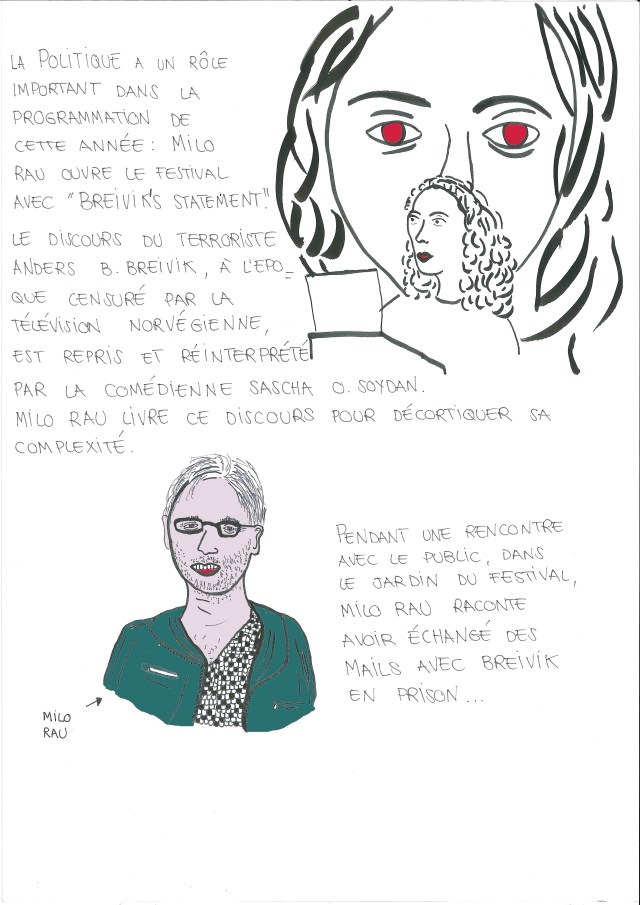 LA POLITIQUE A UN RÔLE
IMPORTANT DANS LA
PROGRAMMATION DE
CETTE ANNÉE : MILO
RAU OUVRE LE FESTIVAL
AVEC "BREIVIK'S STATEMENT".
LE DISCOURS DU TERRORISTE
ANDERS B. BREIVIK, À L'EPO-
QUE CENSURÉ PAR LA
TÉLÉVISION NORVÉGIENNE,
EST REPRIS ET RÉINTERPRÉTÉ
PAR LA COMÉDIENNE SASCHA O. SOYDAN.
MILO RAU LIVRE CE DISCOURS POUR DÉCORTIQUER SA
COMPLEXITÉ.
PENDANT UNE RENCONTRE
AVEC LE PUBLIC, DANS
LE JARDIN DU FESTIVAL,
MILO RAU RACONTE
AVOIR ÉCHANGÉ DES
MAILS AVEC BREIVIK
EN PRISON...
MILO
RAU